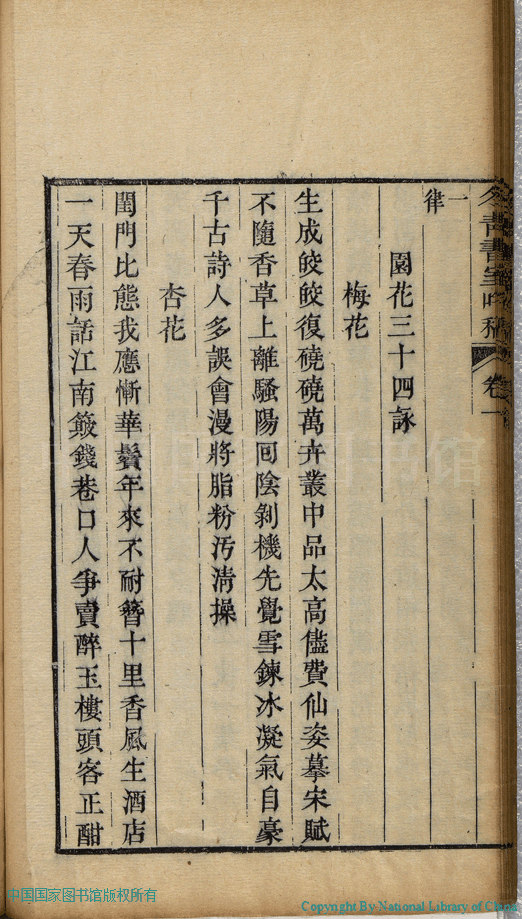 冬青書室吟稿 卷一
一
律
園花三十四詠
梅花
生成皎皎復磽磽萬卉叢中品太高儘費仙姿摹宋賦
不隨香草上離騷陽囘陰剝機先覺雪鍊冰凝氣自豪
千古詩人多誤會漫將脂粉汚淸操
杏花
閨門比態我應慚華鬢年來不耐簪十里香風生酒店
一天春雨話江南簸錢巷口人爭賣醉玉樓頭客正酣
中国国家图书馆版权所有
Copyright By National Library of China